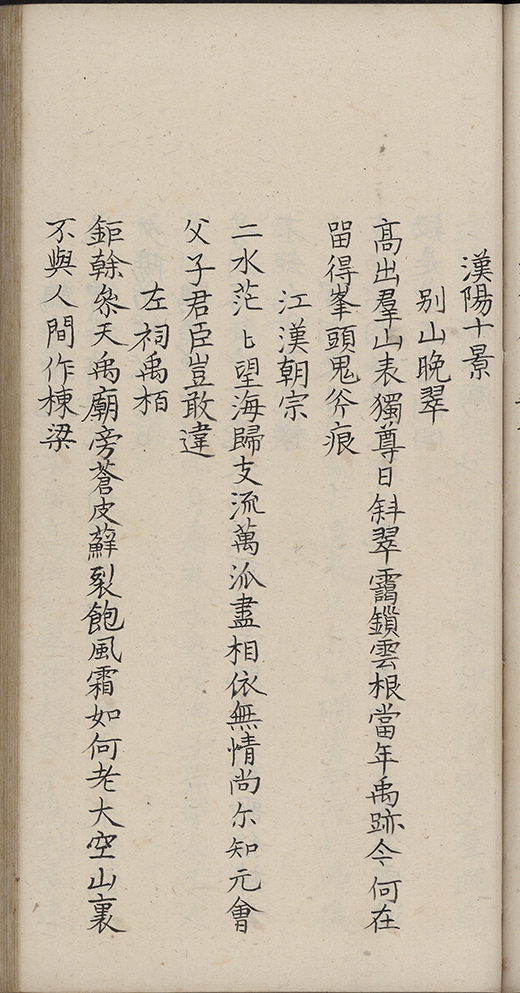 漢陽十景
别山晚翠
髙出羣山表獨尊日斜翠靄鎖雲根當年禹跡今何在
留得峯頭鬼斧痕
江漢朝宗
二水茫〻望海歸支流萬泒盡相依無情尚尔知元會
父子君臣豈敢違
左祠禹栢
鉅榦叅天禹廟旁蒼皮蘚裂飽風霜如何老大空山裏
不與人間作棟梁